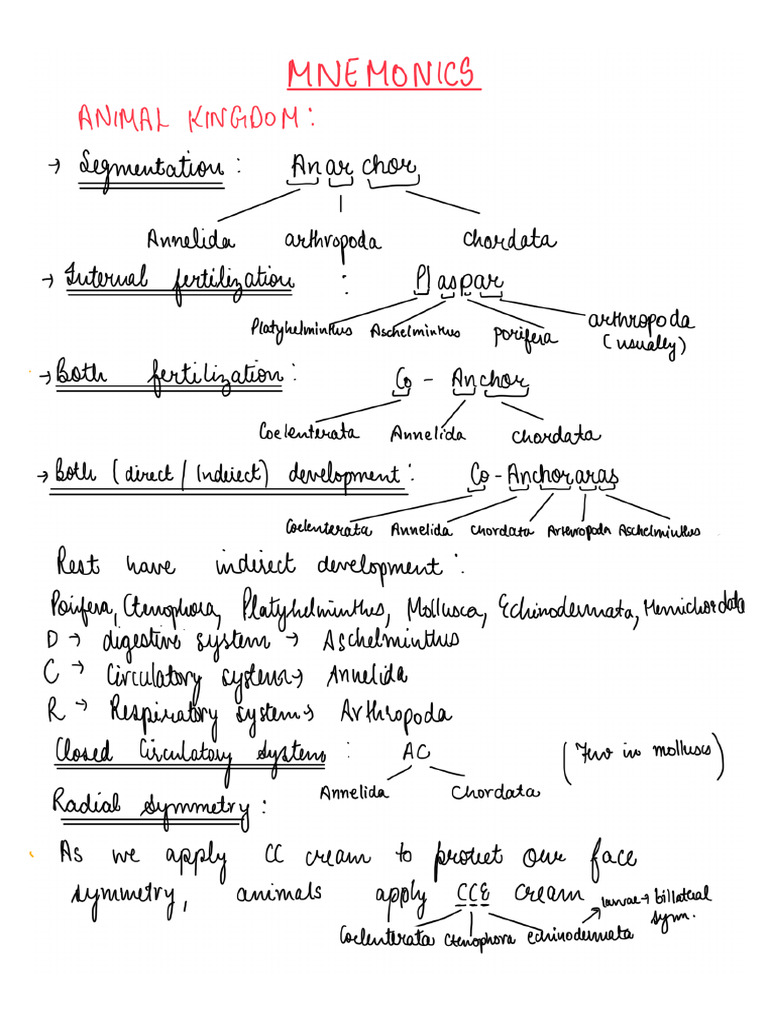 MNEMONICS
ANIMAL KINGDOM:
→ Segmentation : Anarchor
Annelida arthropoda chordata
→ Internal fertilization : Plaspar
Platyhelminthus Aschelminthus porifera arthropoda (usually)
→ Both fertilization : Co - Anchor
Coelenterata Annelida chordata
→ Both (direct / Indirect) development : Co - Anchoraras
Coelenterata Annelida chordata Arthropoda Aschelminthus
Rest have indirect development :
Porifera, Ctenophora, Platyhelminthus, Mollusca, Echinodermata, Hemichordata
D → digestive system → Aschelminthus
C → Circulatory system → Annelida
R → Respiratory system → Arthropoda
Closed Circulatory System : AC (Few in molluscs)
Annelida Chordata
Radial Symmetry :
As we apply CC cream to protect our face
symmetry, animals apply CCE cream
larvae → billateral symm.
Coelenterata Ctenophora echinodermata